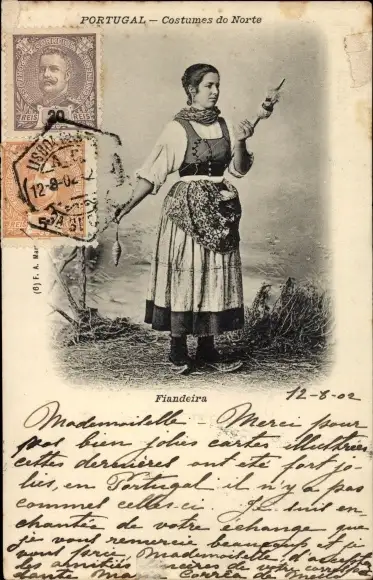 PORTUGAL — Costumes do Norte
20
REIS REIS
12-8-02
5
(6) F. A. Mar
Fiandeira
12-8-02
Mademoiselle - Merci pour
vos bien jolies cartes illustrées
cettes dernières ont été fort jo-
lies, en Portugal il n'y a pas
comme celles-ci Je suis en-
chantée de votre échange que
je vous remercie beaucoup et je
vous prie, Mademoiselle d'
des amitiés sincères de votre
dante Corrêa